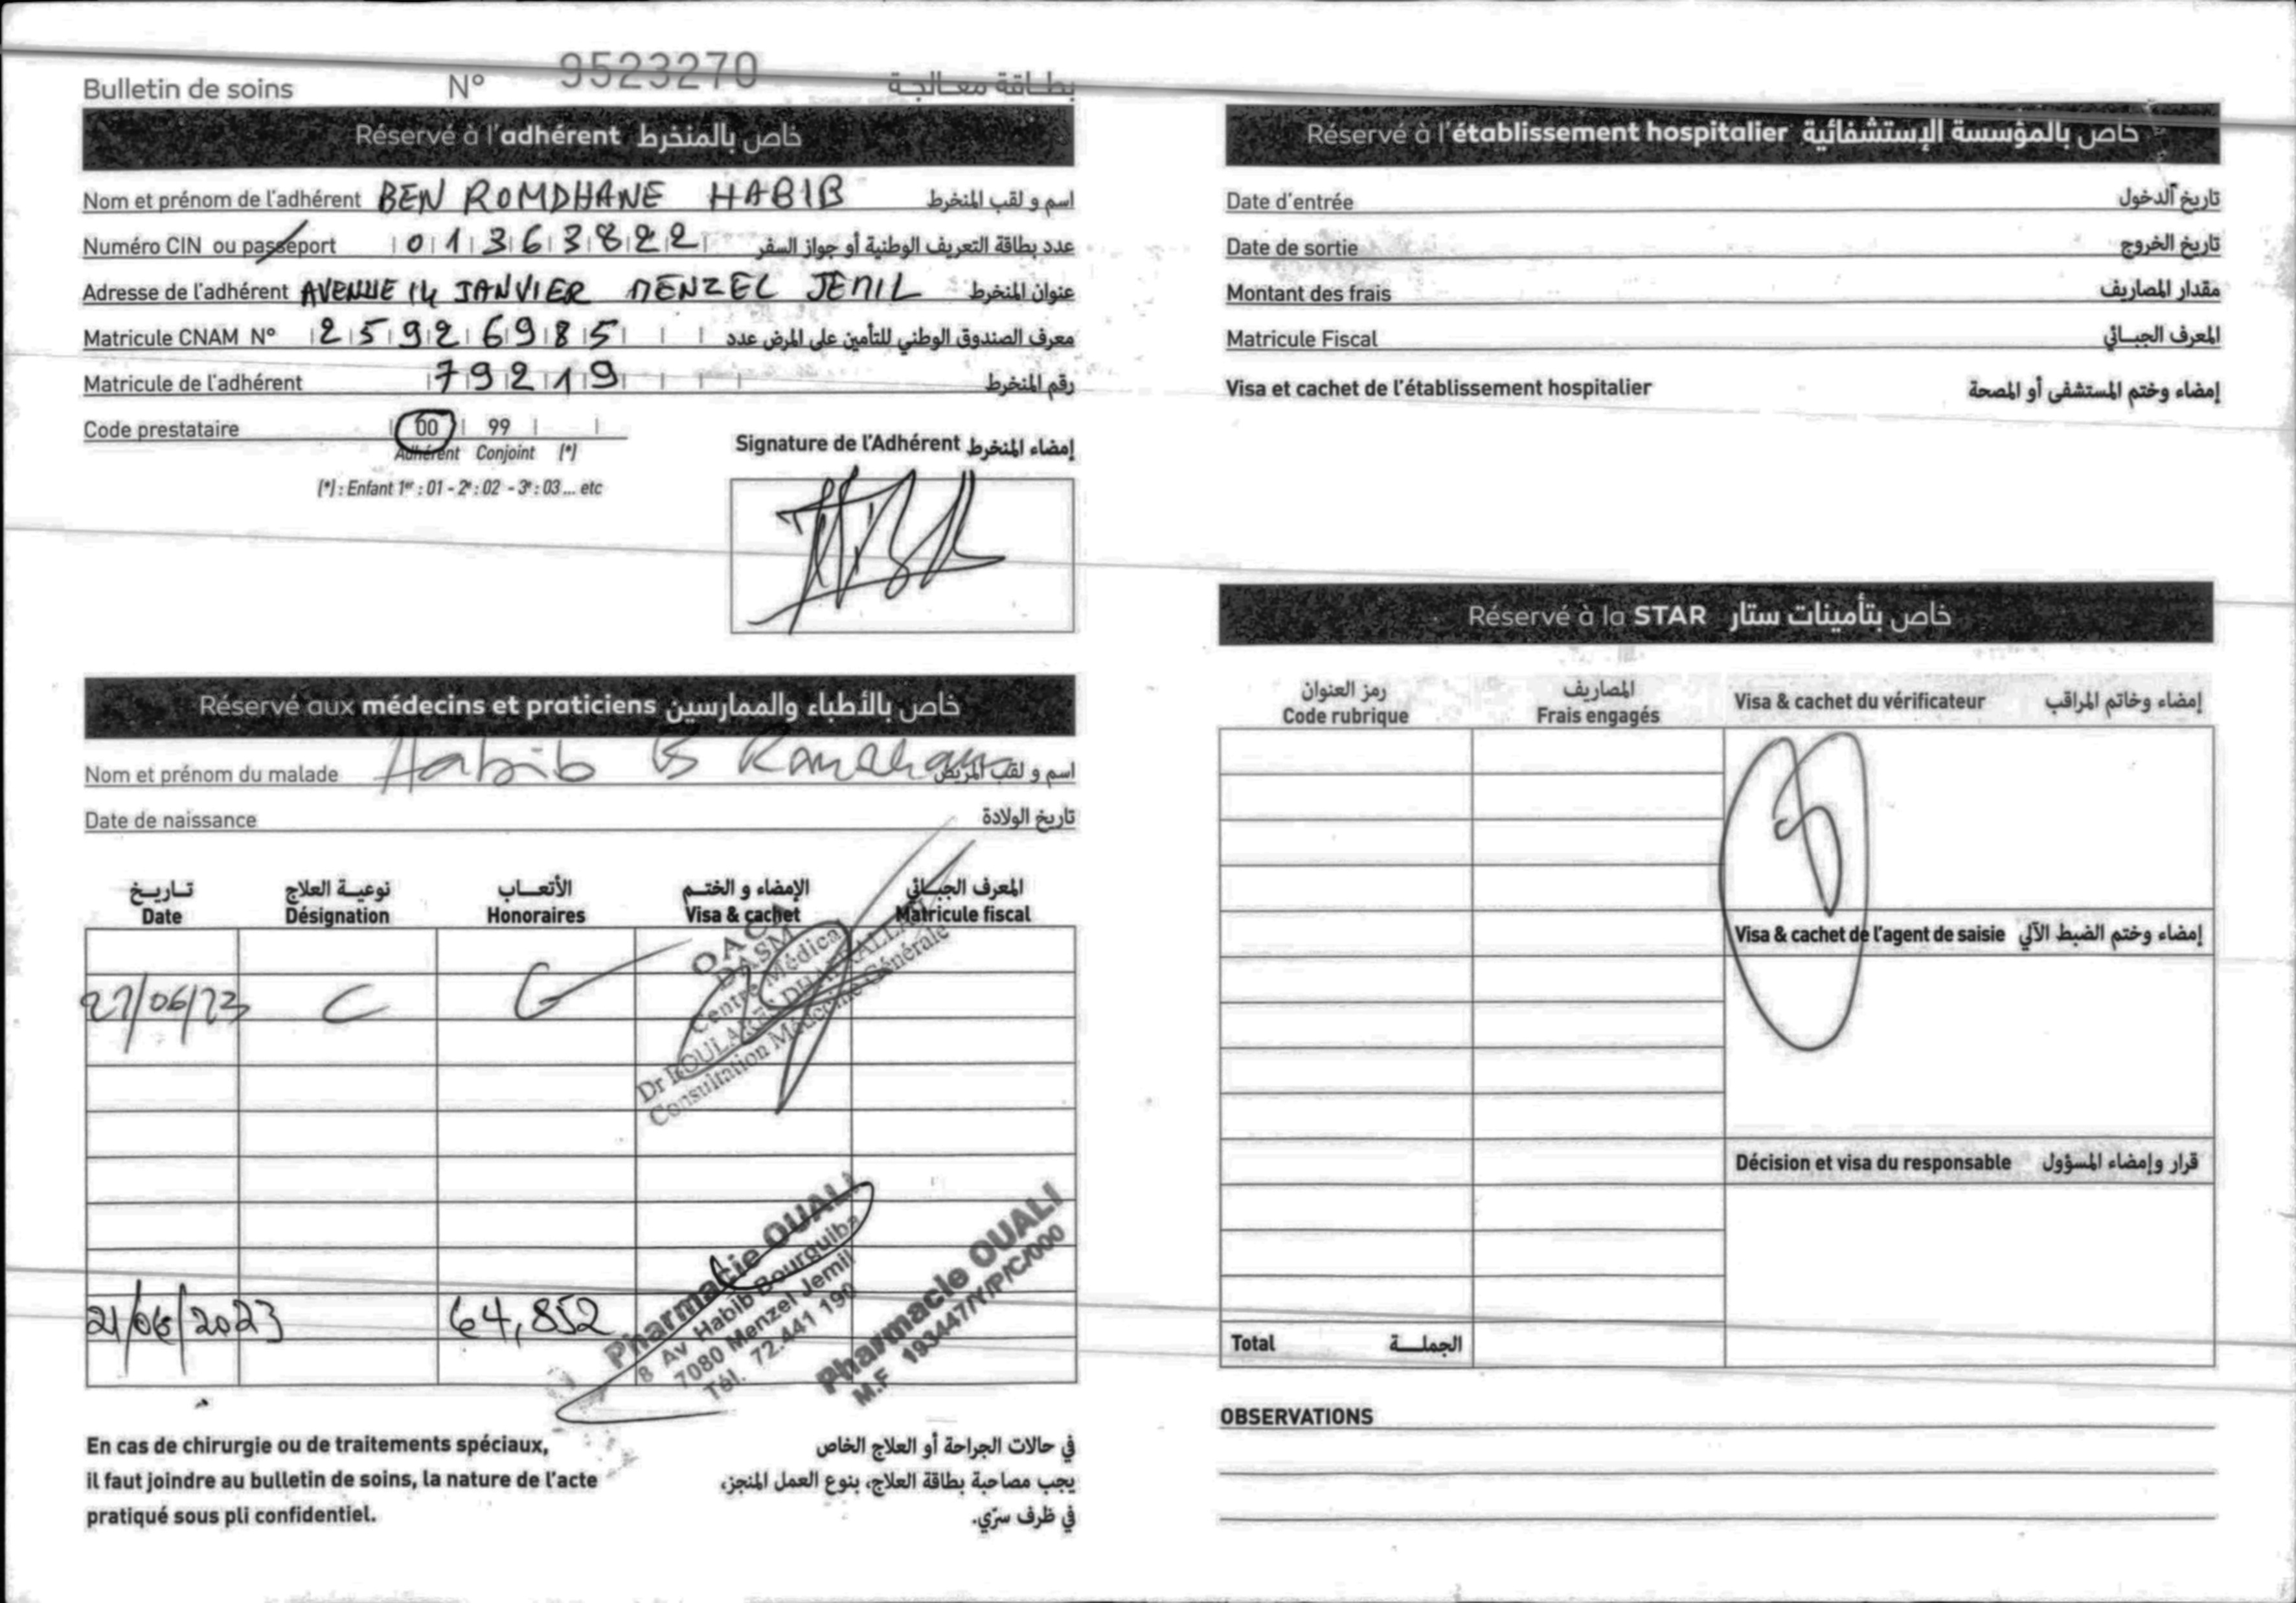 Bulletin de soins N° 9523270 بطـاقة معـالجـة
Réservé à l'adhérent خاص بالمنخرط
Nom et prénom de l'adhérent BEN ROMDHANE HABIB اسم و لقب المنخرط
Numéro CIN ou passeport 01363822 عدد بطاقة التعريف الوطنية أو جواز السفر
Adresse de l'adhérent AVENUE 14 JANVIER MENZEL JEMIL عنوان المنخرط
Matricule CNAM N° 25926985 معرف الصندوق الوطني للتأمين على المرض عدد
Matricule de l'adhérent 79219 رقم المنخرط
Code prestataire 00 99
Adhérent Conjoint (*)
(*) : Enfant 1er : 01 - 2e : 02 - 3e : 03 ... etc
Signature de l'Adhérent إمضاء المنخرط
Réservé aux médecins et praticiens خاص بالأطباء والممارسين
Nom et prénom du malade Habib B Romdhane اسم و لقب المريض
Date de naissance تاريخ الولادة
تـاريـخ نوعيـة العلاج الأتعـــاب الإمضاء و الختـم المعرف الجبـائي
Date Désignation Honoraires Visa & cachet Matricule fiscal
27/06/23 C G
OACA
DASM
Centre Médical
Consultation Médecine Générale
21/06/2023 64,852
Pharmacie OUALI
8 Av Habib Bourguiba
7080 Menzel Jemil
Tél. 72.441 190
Pharmacie OUALI
M.F 193447/Y/P/C/000
En cas de chirurgie ou de traitements spéciaux,
il faut joindre au bulletin de soins, la nature de l'acte
pratiqué sous pli confidentiel.
في حالات الجراحة أو العلاج الخاص
يجب مصاحبة بطاقة العلاج، بنوع العمل المنجز،
في ظرف سرّي.
Réservé à l'établissement hospitalier خاص بالمؤسسة الإستشفائية
Date d'entrée تاريخ الدخول
Date de sortie تاريخ الخروج
Montant des frais مقدار المصاريف
Matricule Fiscal المعرف الجبـائي
Visa et cachet de l'établissement hospitalier إمضاء وختم المستشفى أو المصحة
Réservé à la STAR خاص بتأمينات ستار
رمز العنوان المصاريف
Code rubrique Frais engagés Visa & cachet du vérificateur إمضاء وخاتم المراقب
Visa & cachet de l'agent de saisie إمضاء وختم الضبط الآلي
Décision et visa du responsable قرار وإمضاء المسؤول
Total الجملـــة
OBSERVATIONS